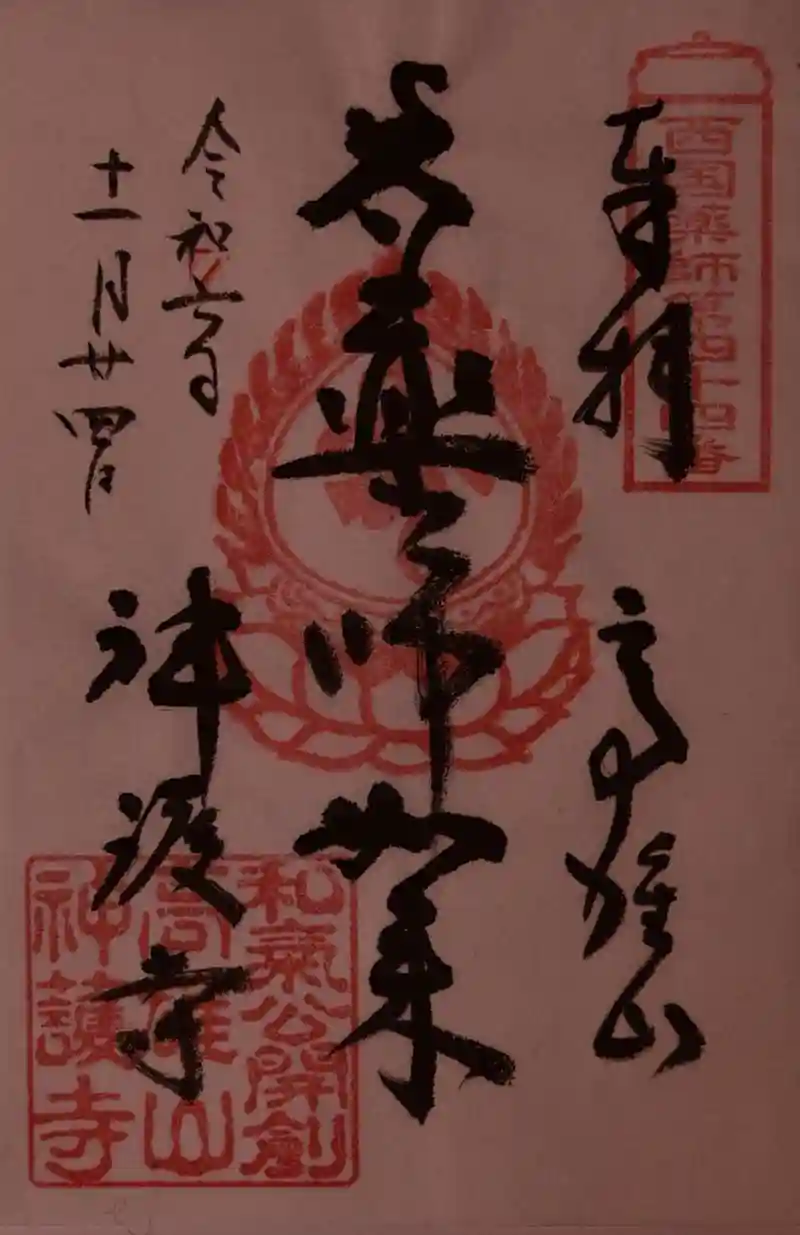 西国薬師第四十四番
奉拝
高雄山
薬師如来
令和六年
十一月廿四日
神護寺
和氣公開創
高雄山
神護寺